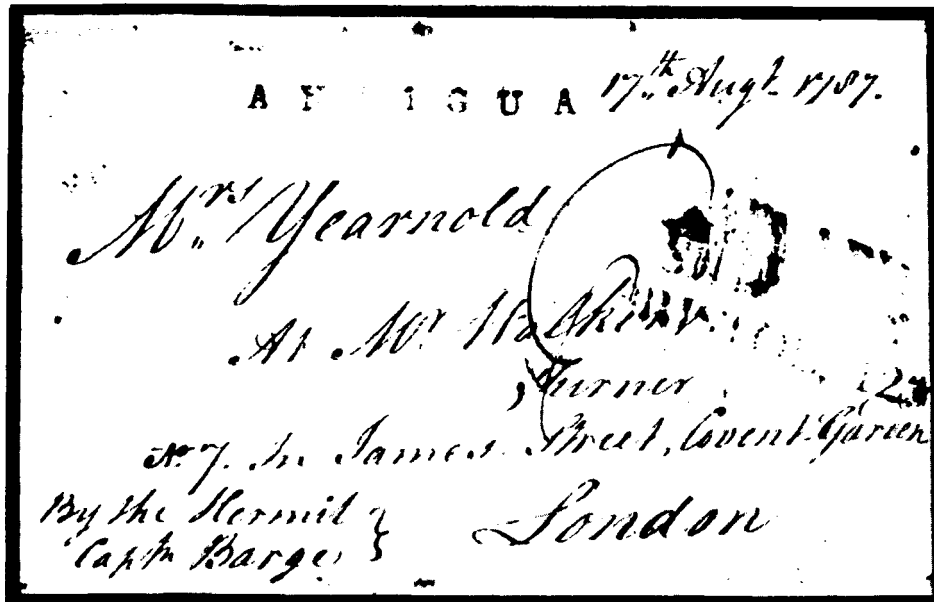 ANTIGUA 17th Augt 1787.
Mrs Yearnold
At Mr
Turner
No 7. In James Street, Covent Garden
By the Hermit
London
Captn Barge